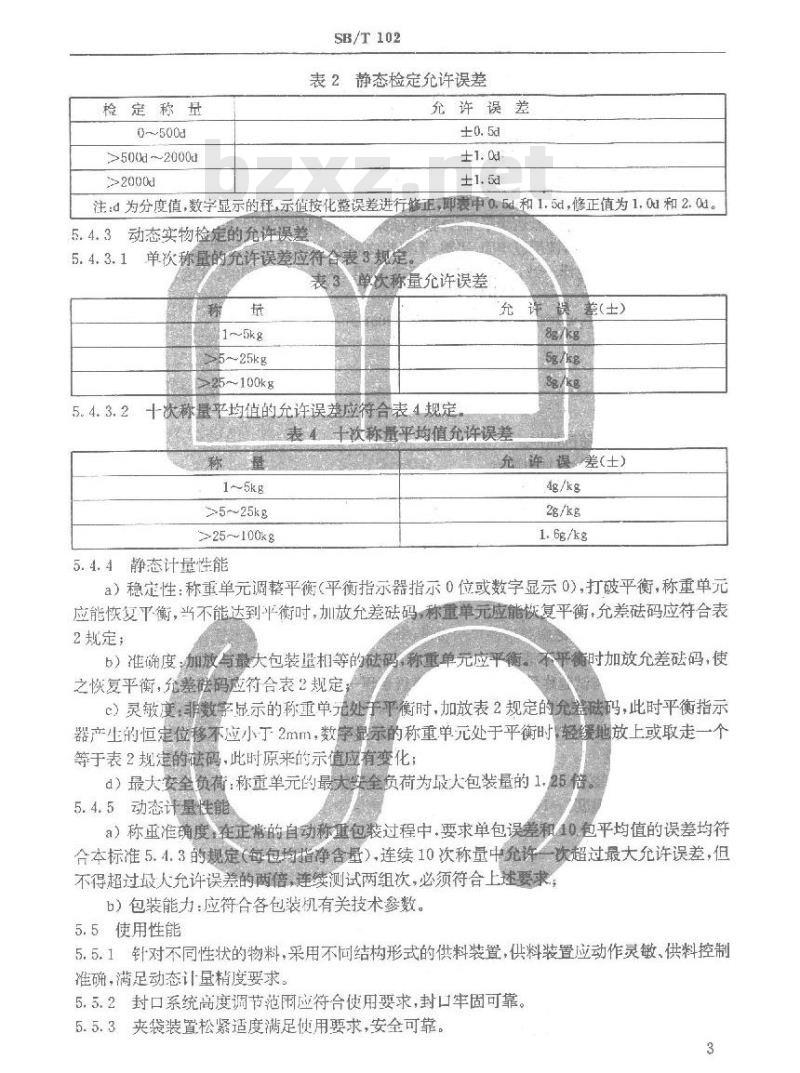 SB/T 102
表 2 静态检定允许误差
检 定 称 量 允 许 误 差
0～500d ±0.5d
>500d～2000d ±1.0d
>2000d ±1.5d
注:d 为分度值,数字显示的秤,示值按化整误差进行修正,即表中 0.5d 和 1.5d,修正值为 1.0d 和 2.0d。
5.4.3 动态实物检定的允许误差
5.4.3.1 单次称量的允许误差应符合表 3 规定。
表 3 单次称量允许误差
称 量 允 许 误 差(±)
1～5kg 8g/kg
>5～25kg 5g/kg
>25～100kg 3g/kg
5.4.3.2 十次称量平均值的允许误差应符合表 4 规定。
表 4 十次称量平均值允许误差
称 量 允 许 误 差(±)
1～5kg 4g/kg
>5～25kg 2g/kg
>25～100kg 1.6g/kg
5.4.4 静态计量性能
a) 稳定性:称重单元调整平衡(平衡指示器指示 0 位或数字显示 0),打破平衡,称重单元
应能恢复平衡,当不能达到平衡时,加放允差砝码,称重单元应能恢复平衡,允差砝码应符合表
2 规定;
b) 准确度:加放与最大包装量相等的砝码,称重单元应平衡。不平衡时加放允差砝码,使
之恢复平衡,允差砝码应符合表 2 规定;
c) 灵敏度:非数字显示的称重单元处于平衡时,加放表 2 规定的允差砝码,此时平衡指示
器产生的恒定位移不应小于 2mm,数字显示的称重单元处于平衡时,轻缓地放上或取走一个
等于表 2 规定的砝码,此时原来的示值应有变化;
d) 最大安全负荷:称重单元的最大安全负荷为最大包装量的 1.25 倍。
5.4.5 动态计量性能
a) 称重准确度:在正常的自动称重包装过程中,要求单包误差和 10 包平均值的误差均符
合本标准 5.4.3 的规定(每包均指净含量),连续 10 次称量中允许一次超过最大允许误差,但
不得超过最大允许误差的两倍,连续测试两组次,必须符合上述要求;
b) 包装能力:应符合各包装机有关技术参数。
5.5 使用性能
5.5.1 针对不同性状的物料,采用不同结构形式的供料装置,供料装置应动作灵敏、供料控制
准确,满足动态计量精度要求。
5.5.2 封口系统高度调节范围应符合使用要求,封口牢固可靠。
5.5.3 夹袋装置松紧适度满足使用要求,安全可靠。
3
bzxz.net